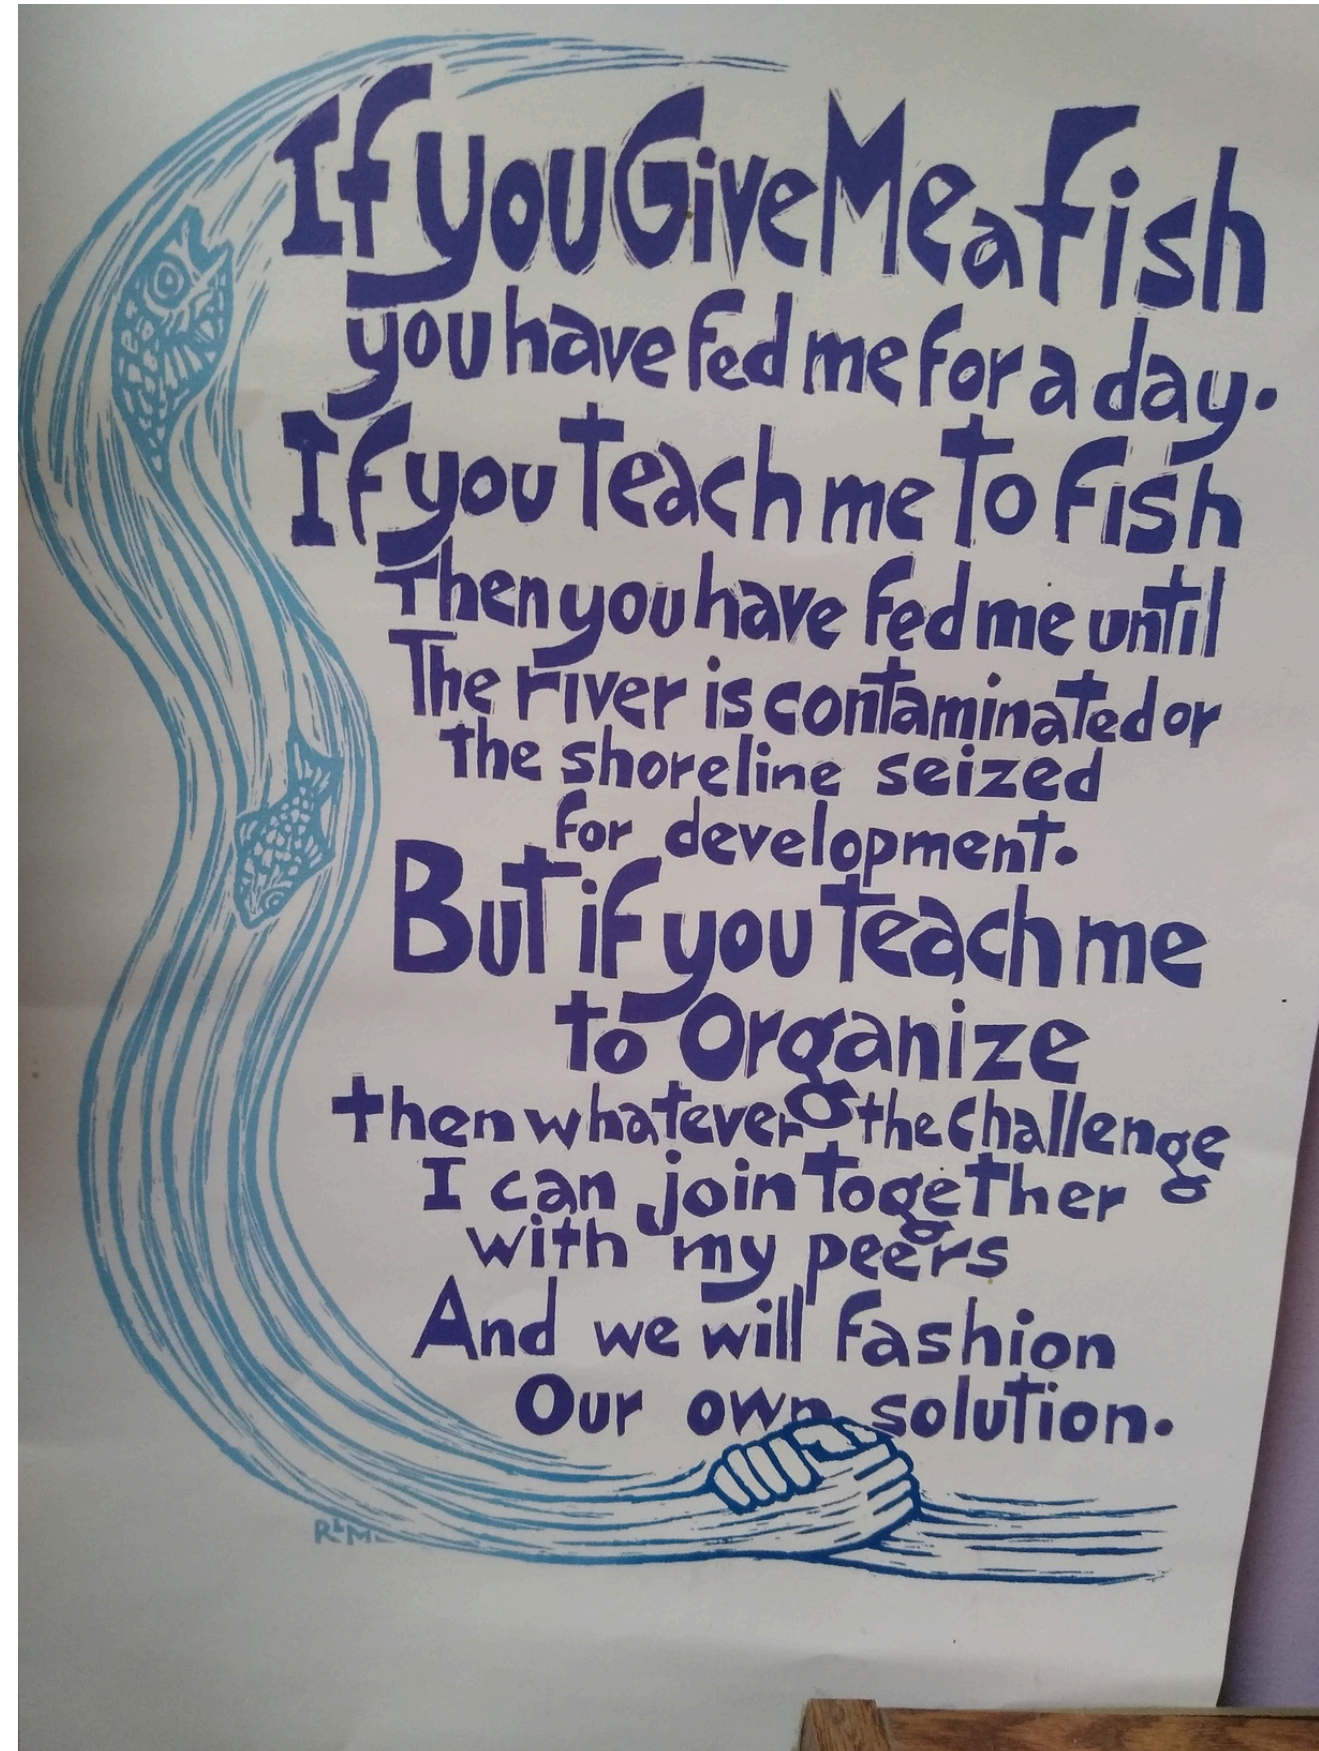 If you Give Me a fish
you have fed me for a day.
If you Teach me To fish
Then you have fed me until
The river is contaminated or
the shoreline seized
for development.
But if you teach me
to Organize
then whatever the challenge
I can join Together
with my peers
And we will fashion
Our own solution.